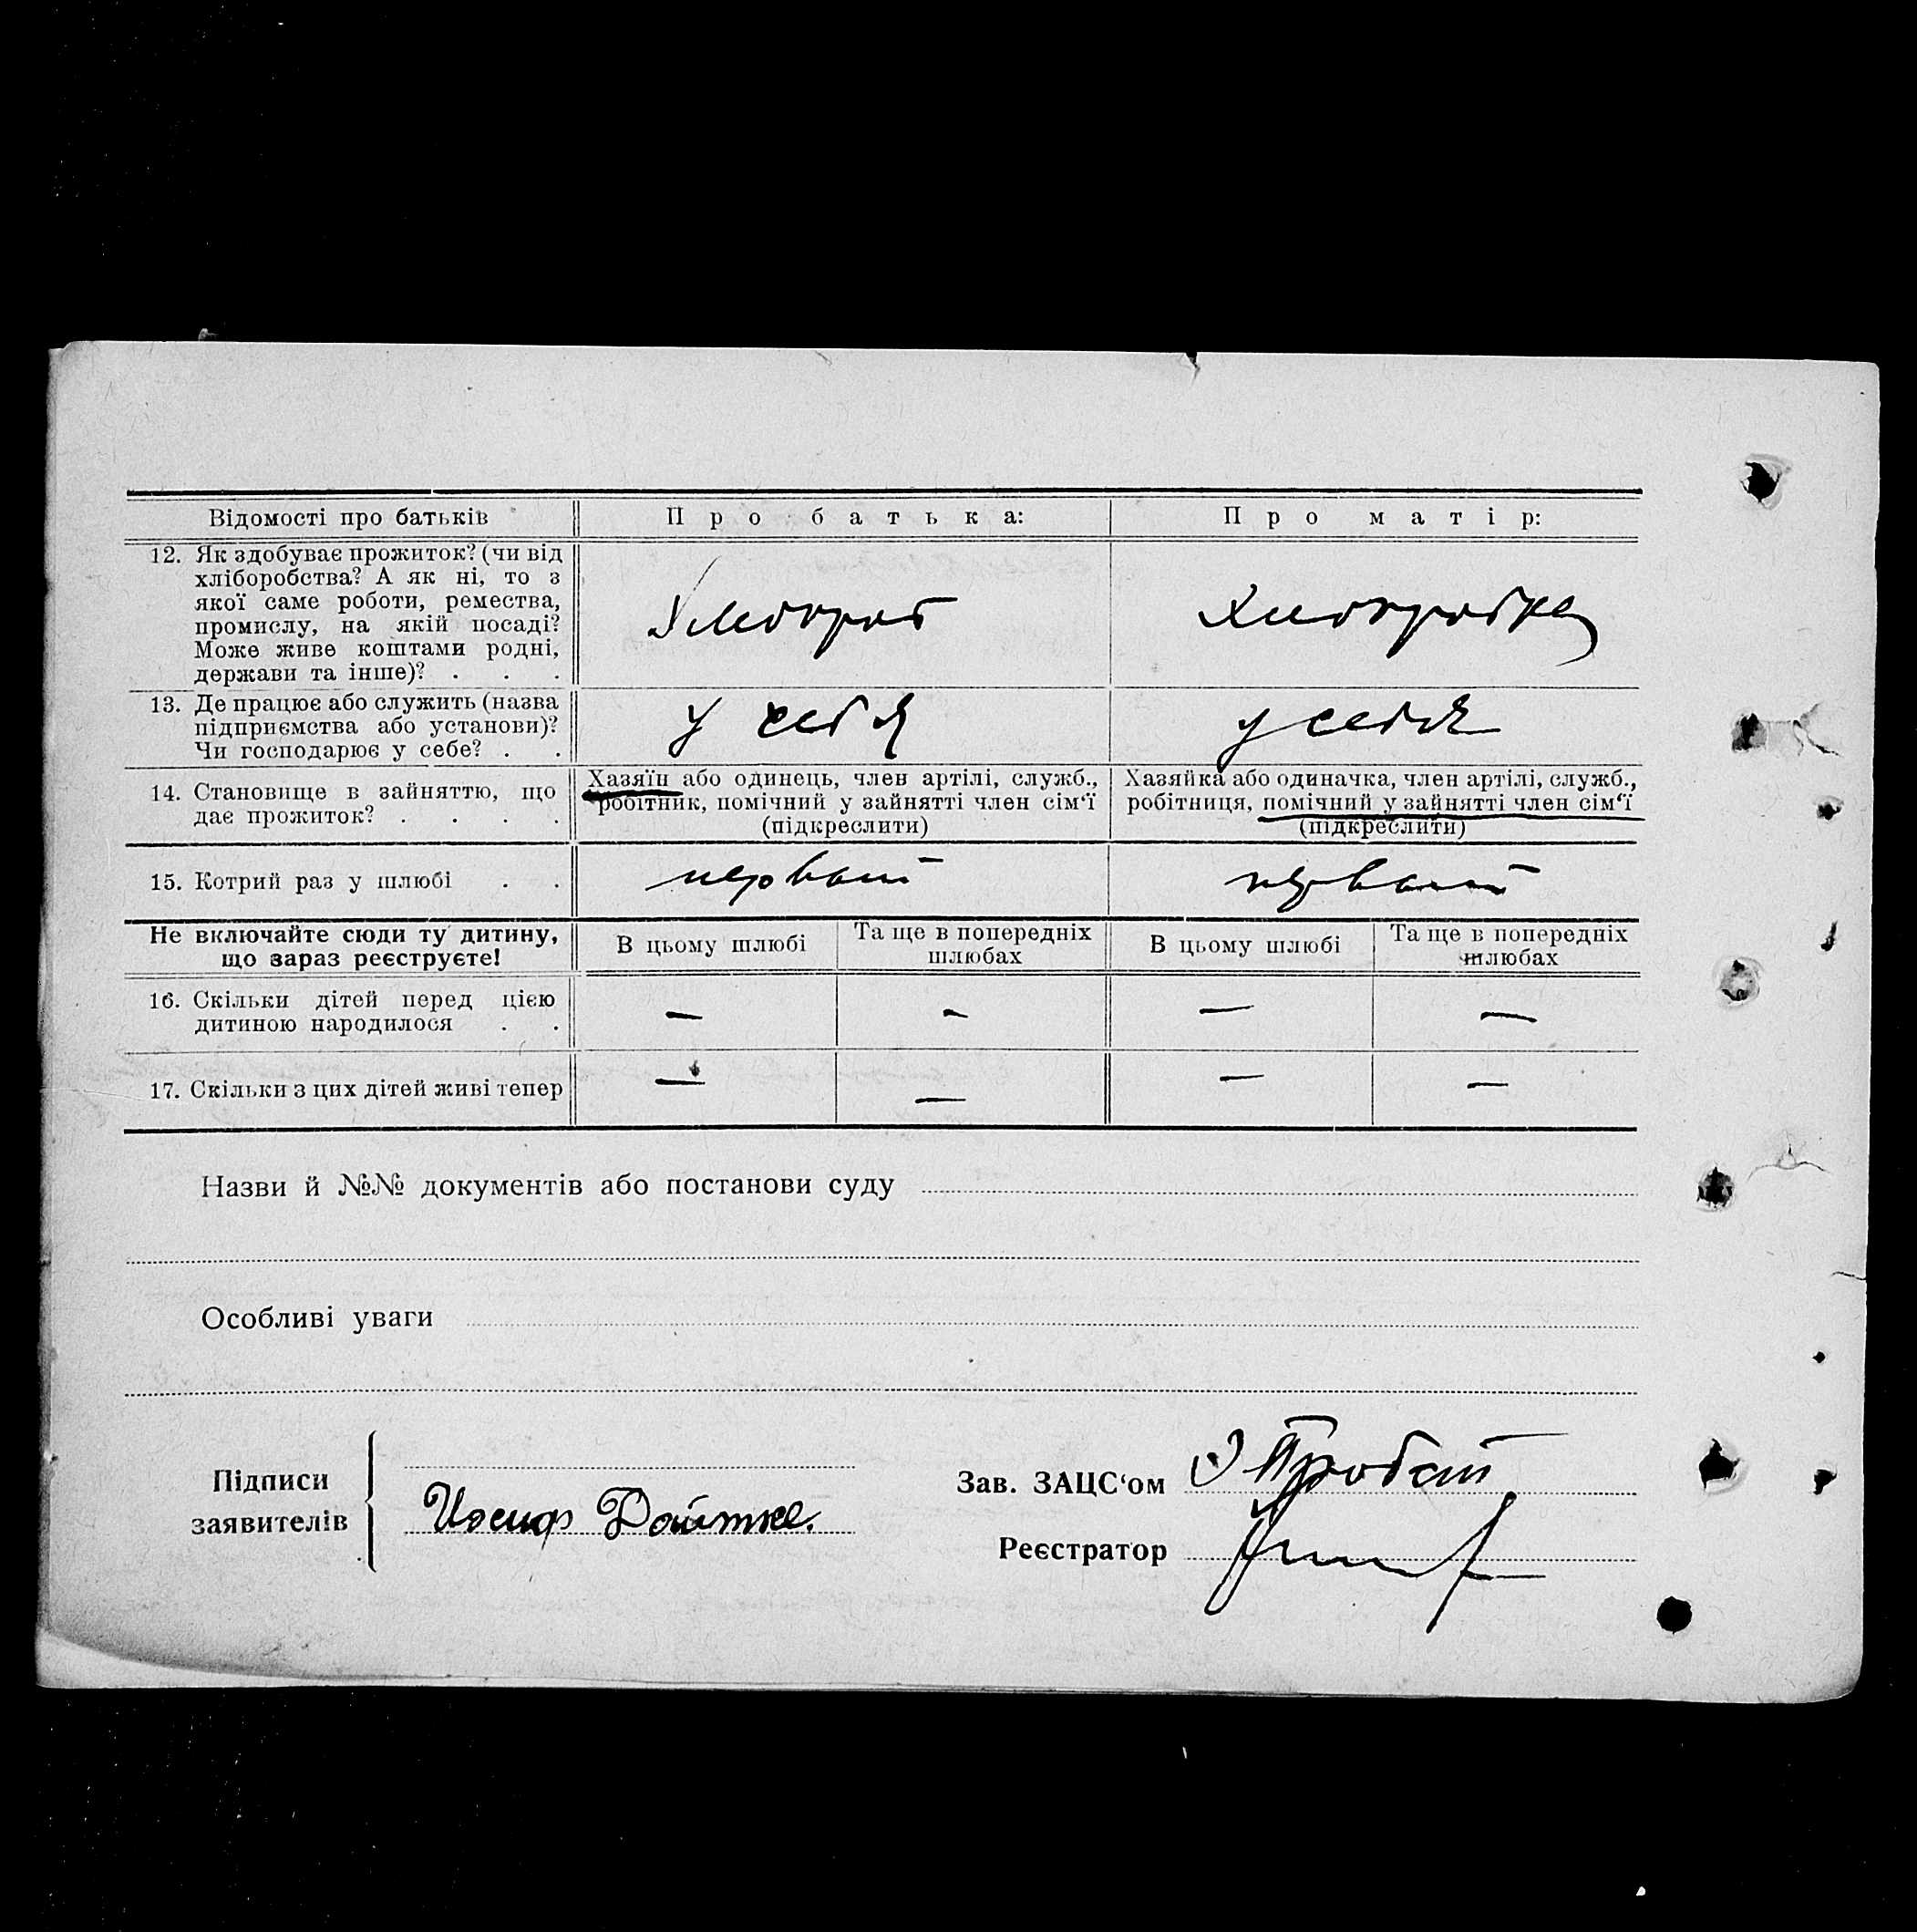 Відомості про батьків
Про батька:
Про матір:
12. Як здобуває прожиток? (чи від
хліборобства? А як ні, то з
якої саме роботи, ремества,
промислу, на якій посаді?
Може живе коштами родні,
держави та інше)? . . .
13. Де працює або служить (назва
підприємства або установи)?
Чи господарює у себе? . .
у себя
у себя
14. Становище в зайняттю, що
дає прожиток? . . . .
Хазяїн або одинець, член артілі, служб.,
робітник, помічний у зайнятті член сім'ї
(підкреслити)
Хазяйка або одиначка, член артілі, служб.,
робітниця, помічний у зайнятті член сім'ї
(підкреслити)
15. Котрий раз у шлюбі . .
первый
первый
Не включайте сюди ту дитину,
що зараз реєструєте!
В цьому шлюбі
Та ще в попередніх
шлюбах
В цьому шлюбі
Та ще в попередніх
шлюбах
16. Скільки дітей перед цією
дитиною народилося . .
— — — —
17. Скільки з цих дітей живі тепер
— — — —
Назви й №№ документів або постанови суду
Особливі уваги
Підписи
заявителів
Иосиф
Зав. ЗАЦС'ом
Реєстратор